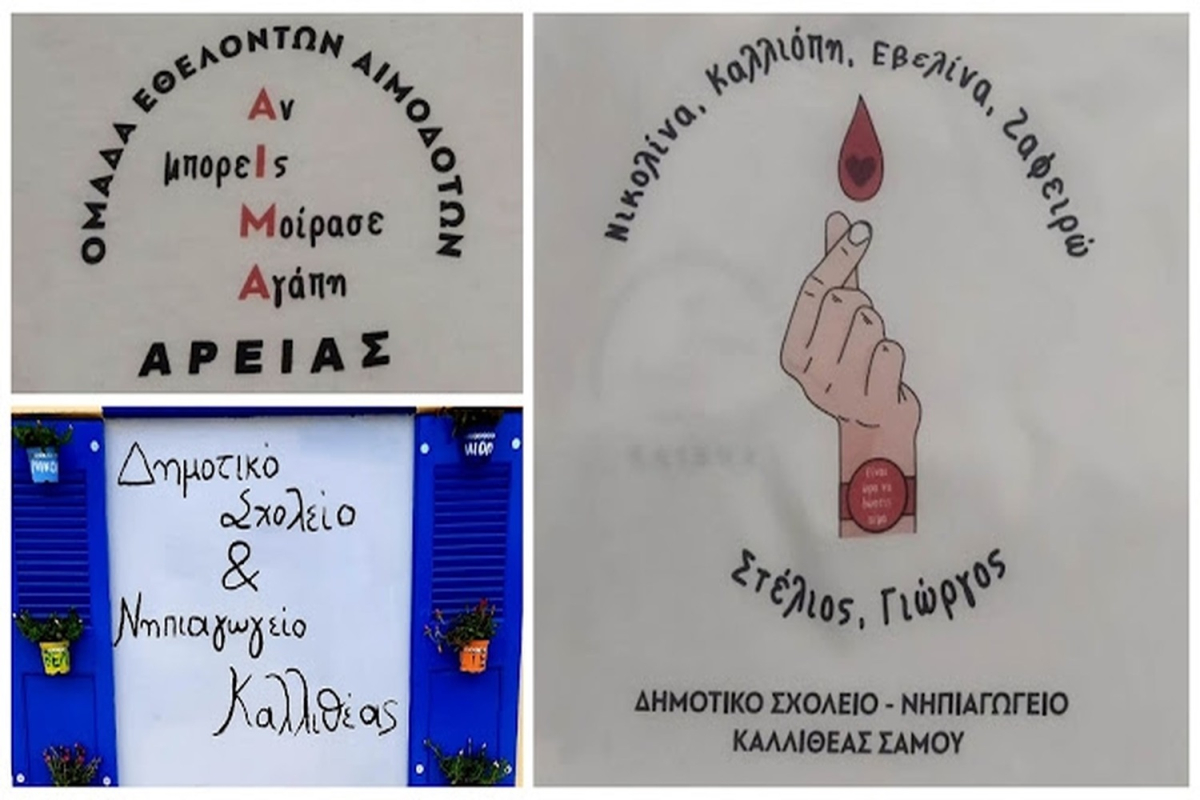 ΟΜΑΔΑ ΕΘΕΛΟΝΤΩΝ ΑΙΜΟΔΟΤΩΝ
Αν
μπορεΙς
Μοίρασε
Αγάπη
ΑΡΕΙΑΣ
Δημοτικό
Σχολείο
&
Νηπιαγωγείο
Καλλιθέας
Νικολίνα, Καλλιόπη, Εβελίνα, Ζαφειρώ
Είναι
ώρα να
δώσεις
αίμα
Στέλιος, Γιώργος
ΔΗΜΟΤΙΚΟ ΣΧΟΛΕΙΟ - ΝΗΠΙΑΓΩΓΕΙΟ
ΚΑΛΛΙΘΕΑΣ ΣΑΜΟΥ